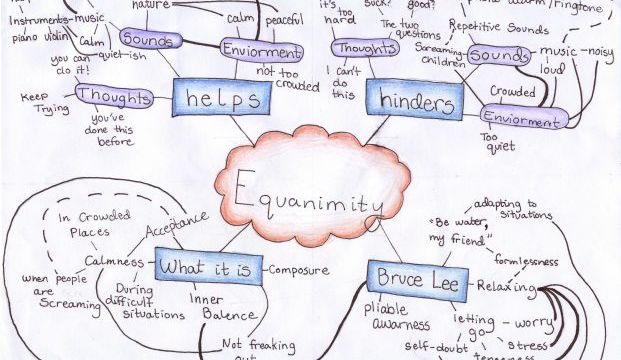 nature
calm
peaceful
Instruments-music
piano violin
Calm
Sounds
quiet-ish
you can
do it!
Enviorment
not too
crowded
Thoughts
Keep
Trying
you've
done this
before
helps
it's too
hard
suck?
good?
The two
questions
Thoughts
I can't
do this
Repetitive Sounds
Screaming
children
Sounds
music
noisy
loud
Crowded
Enviorment
Too
quiet
hinders
Equanimity
In Crowded
Places
Acceptance
Calmness
when people
are
Screaming
During
difficult
situations
What it is
Composure
Inner
Balence
Not freaking
out
Bruce Lee
adapting to
situations
"Be water,
my friend"
formlessness
Relaxing
pliable
awarness
letting
go
worry
stress
self-doubt